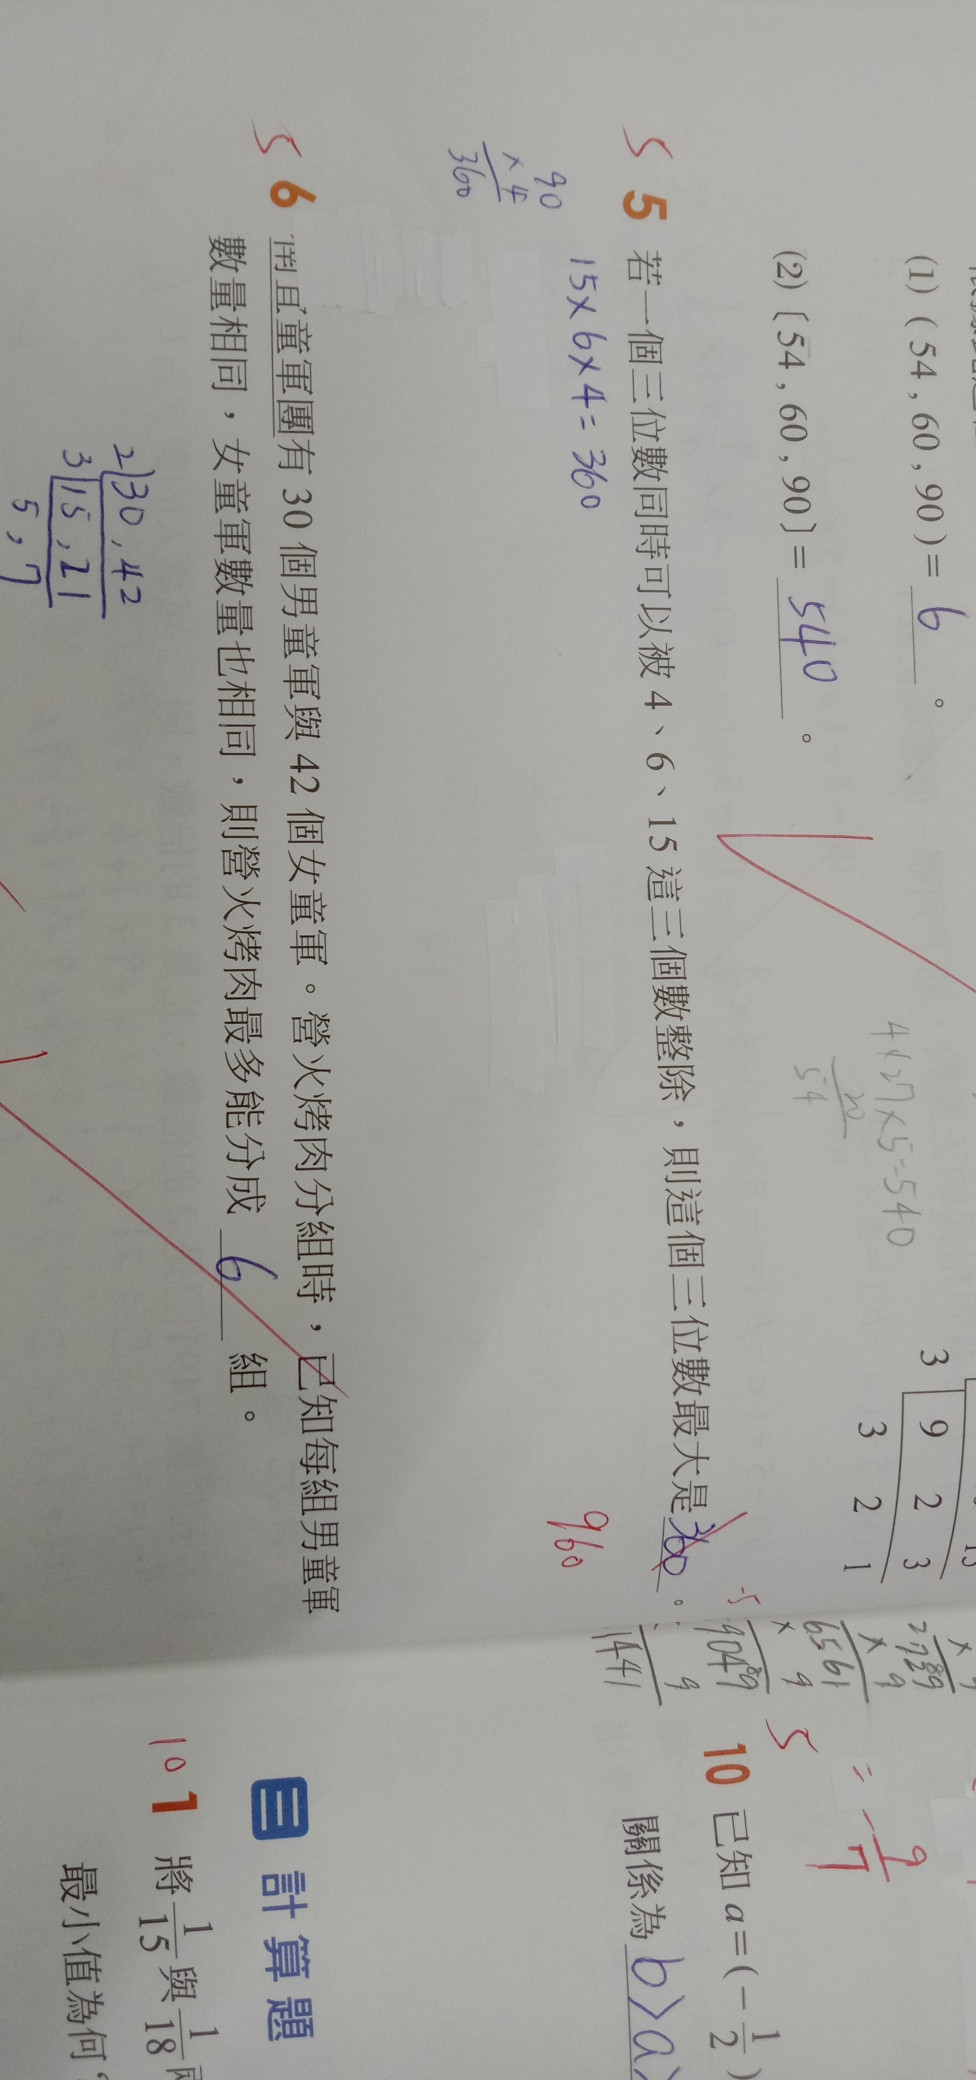 (1) ( 54 , 60 , 90 ) = 6 。
(2) [ 54 , 60 , 90 ] = 540 。
×5=540
54
3 9 2 3
3 2 1
5
5 若一個三位數同時可以被 4、6、15 這三個數整除，則這個三位數最大是 360 。
-5
960
15×6×4=360
90
×4
360
5
6 童軍團有 30 個男童軍與 42 個女童軍。營火烤肉分組時，已知每組男童軍
數量相同，女童軍數量也相同，則營火烤肉最多能分成 6 組。
2 30 , 42
3 15 , 21
5 , 7
× 9
6561
× 9
9
1441
= -9/7
5
10 已知 a = ( - 1/2 )
關係為 b>a>
三 計算題
10
1 將 1/15 與 1/18
最小值為何